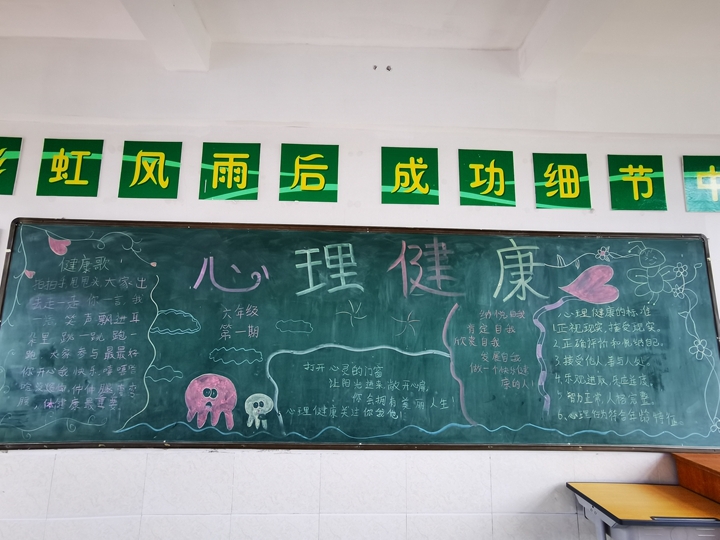 彩虹风雨后 成功细节中
心理健康
六年级
第一期
健康歌
大家出
走一走 你一言 我
一 笑声飘进耳
朵里 跳一跳 跑一
跑 大家参与最最好
你开心我快乐 嘻嘻哈
体健康最重要
打开心灵的门窗
让阳光进来 敞开心扉
你会拥有美丽人生!
心理健康关过你我他!
自我
肯定自我
欣赏自我
发展自我
做一个
的人!
心理健康的标准
1.正视现实、接受现实
2.正确评价和 自己
3.接受他人,善与人处
4.乐观进取,
5.智力正常,人格完整
6.心理行为符合年龄特征